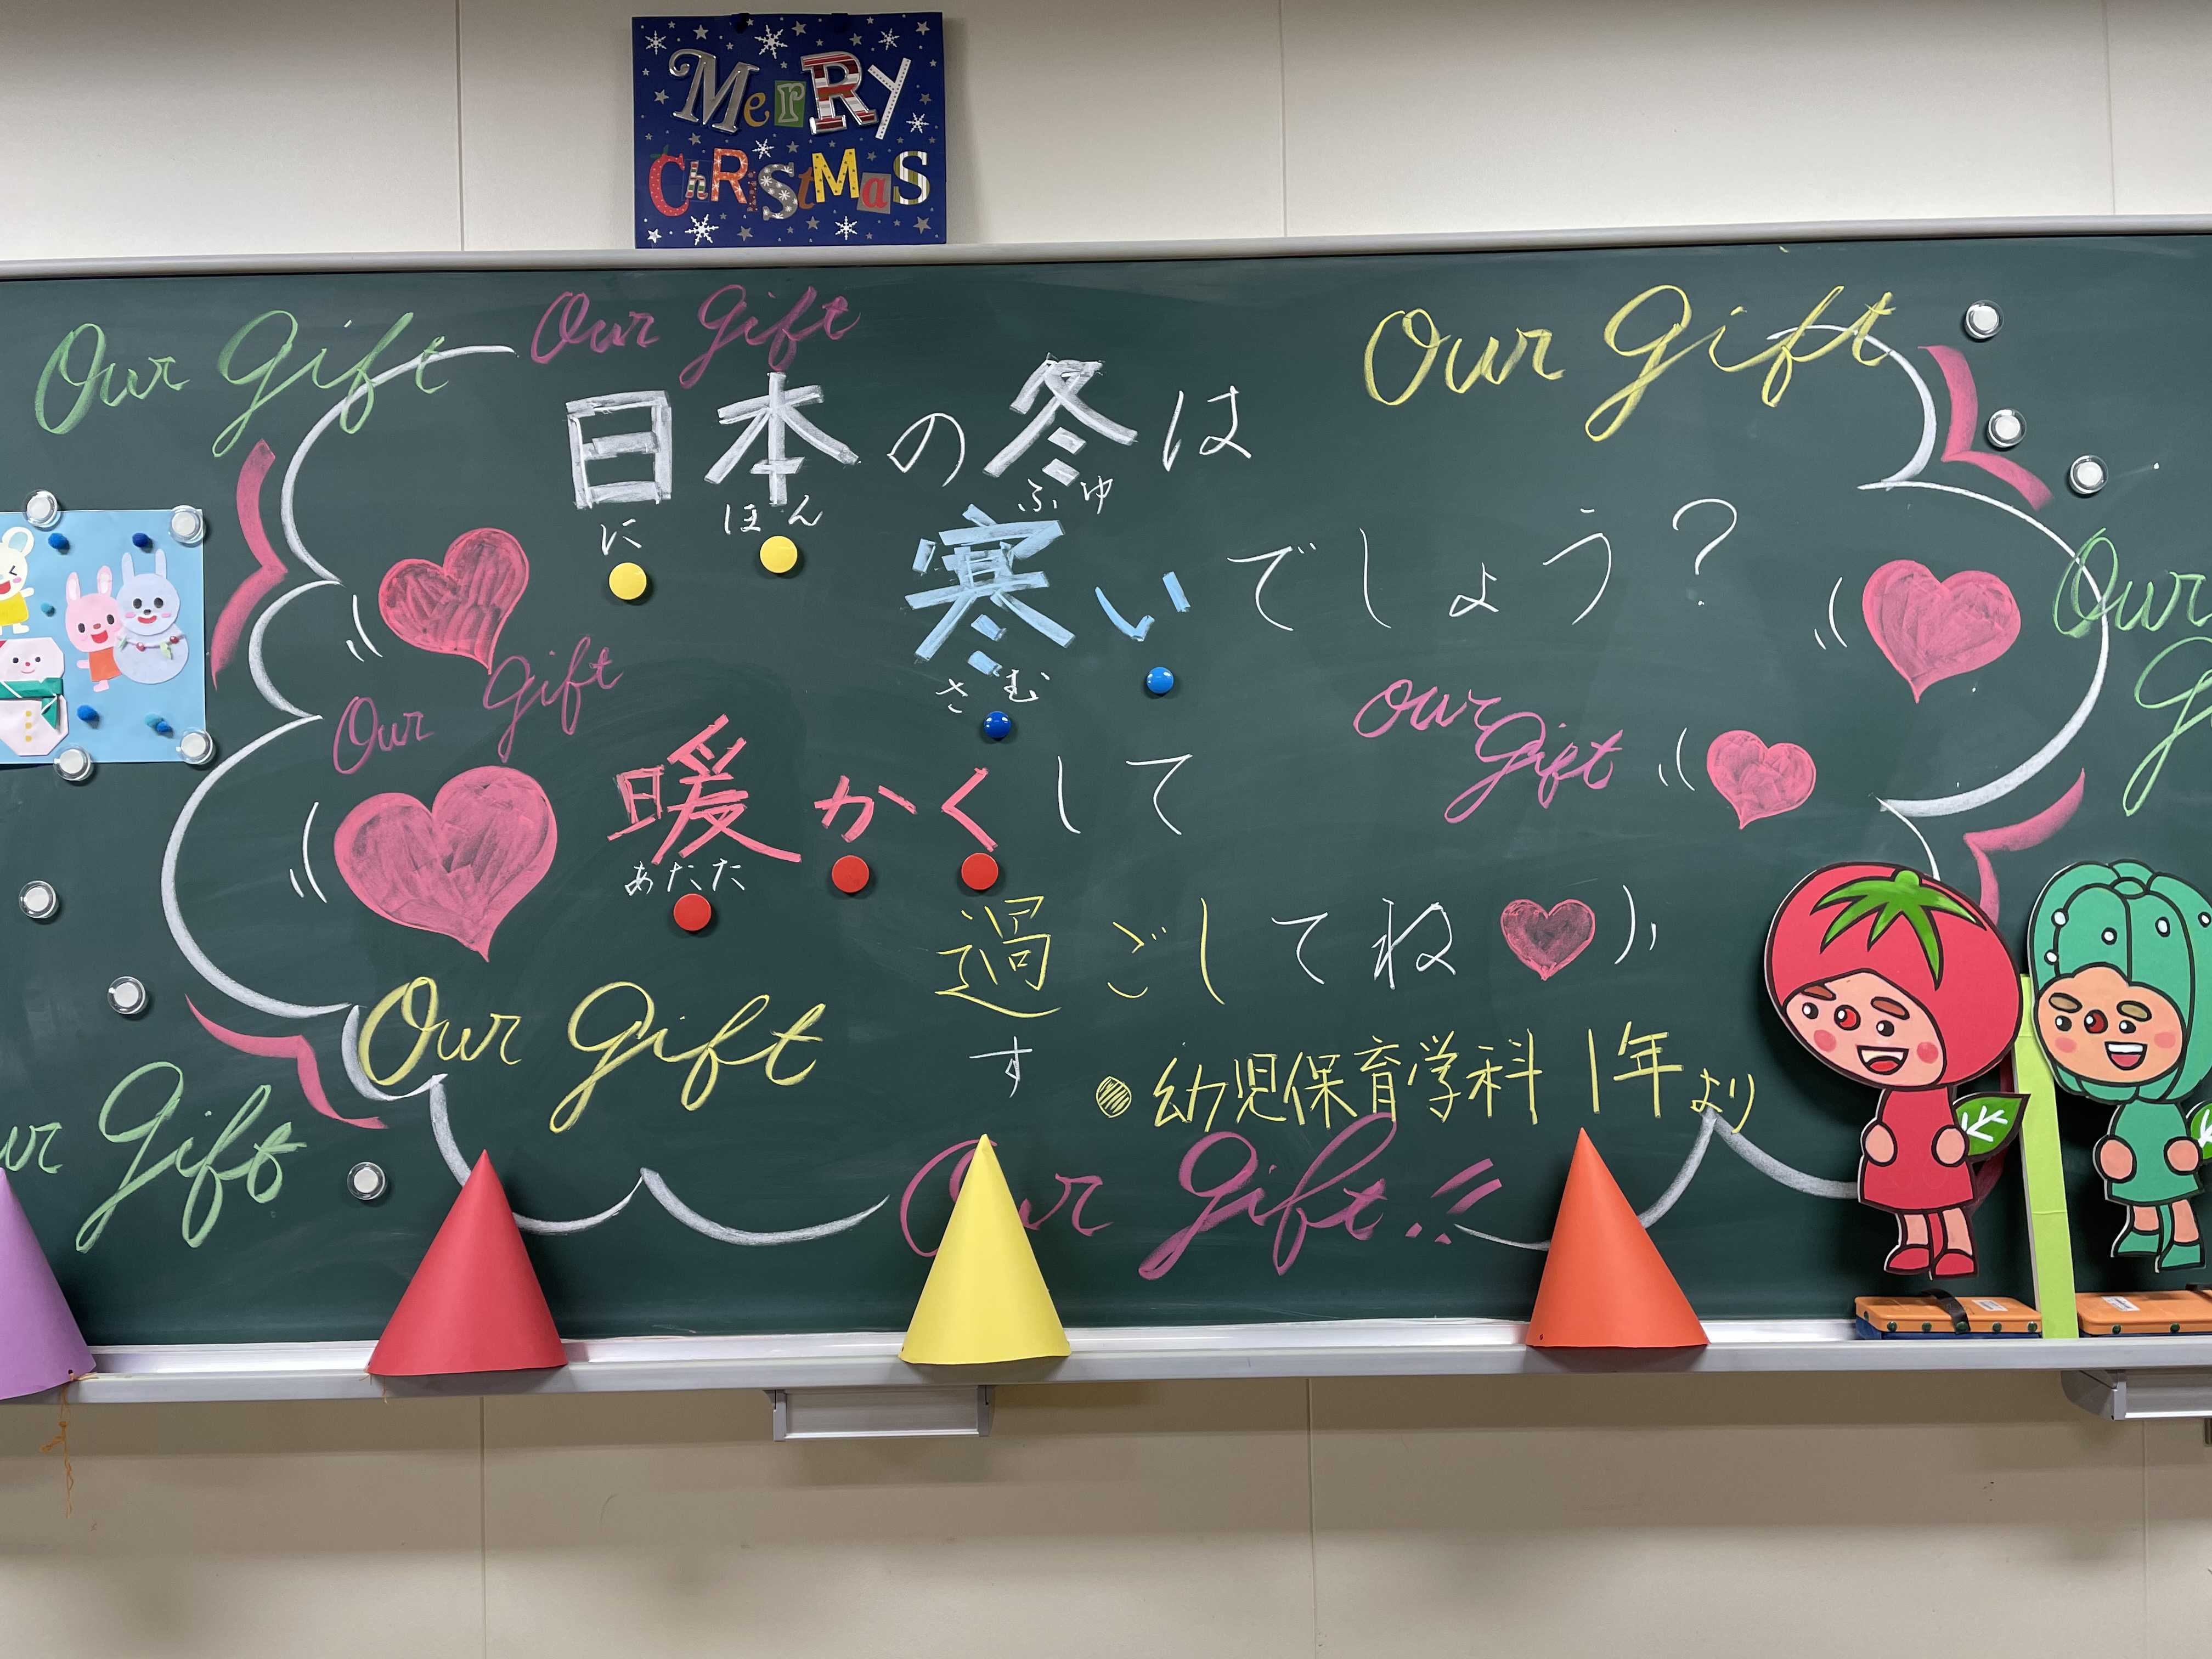 MerRy
ChRiStMaS
Our Gift
Our Gift
Our Gift
日本の冬は
にほん ふゆ
寒いでしょう?
さむ
Our
G
Our Gift
Our Gift
暖かくして
あたた
過ごしてね
す
Our Gift
幼児保育学科 1年より
ur Gift
Our Gift!!